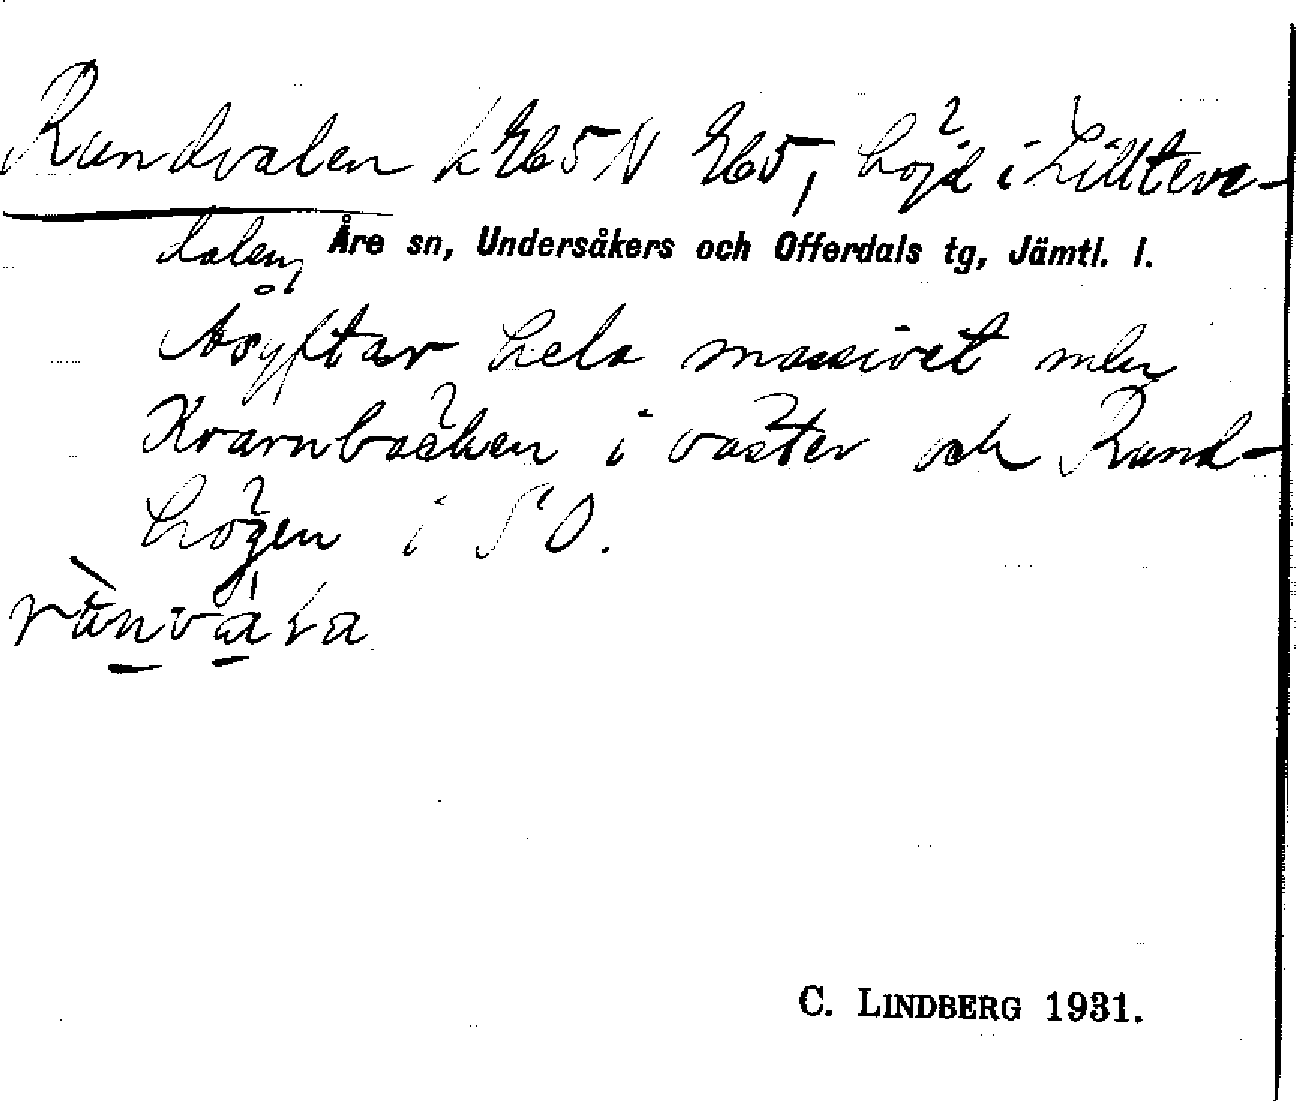 Rundvalen k Eb5N Eb5, höjd i Lillteve-
dalen, Åre sn, Undersåkers och Offerdals tg, Jämtl. l.
Åsyftar hela massivet mln
Kvarnbäcken i väster och Rund-
högen i SO.
C. LINDBERG 1931.